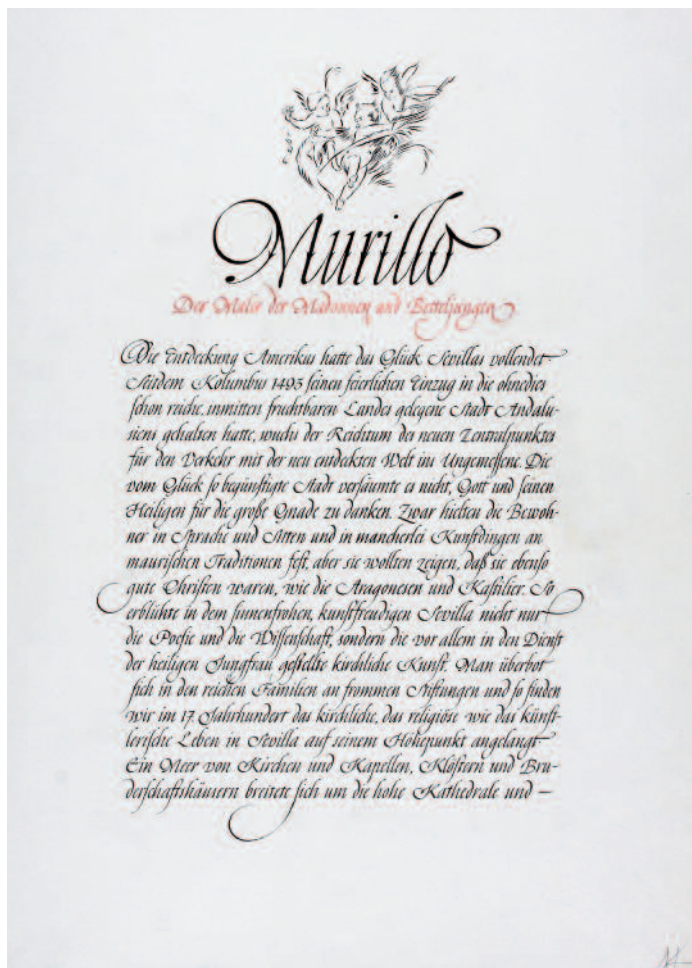 Murillo
Der Maler der Madonnen und Betteljungen
Die Entdeckung Amerikas hatte das Glück Sevillas vollendet.
Seitdem Kolumbus 1493 seinen feierlichen Einzug in die ohnedies
schon reiche, inmitten fruchtbaren Landes gelegene Stadt Andalu-
siens gehalten hatte, wuchs der Reichtum des neuen Zentralpunktes
für den Verkehr mit der neu entdeckten Welt ins Ungemessene. Die
vom Glück so begünstigte Stadt versäumte es nicht, Gott und seinen
Heiligen für die große Gnade zu danken. Zwar hielten die Bewoh-
ner in Sprache und Sitten und in mancherlei Kunstdingen an
maurischen Traditionen fest, aber sie wollten zeigen, daß sie ebenso
gute Christen waren, wie die Aragonesen und Kastilier. So
erblühte in dem sinnenfrohen, kunstfreudigen Sevilla nicht nur
die Poesie und die Wissenschaft, sondern die vor allem in den Dienst
der heiligen Jungfrau gestellte kirchliche Kunst. Man überbot
sich in den reichen Familien an frommen Stiftungen und so finden
wir im 17. Jahrhundert das kirchliche, das religiöse wie das künst-
lerische Leben in Sevilla auf seinem Höhepunkt angelangt.
Ein Meer von Kirchen und Kapellen, Klöstern und Bru-
derschaftshäusern breitete sich um die hohe Kathedrale und —